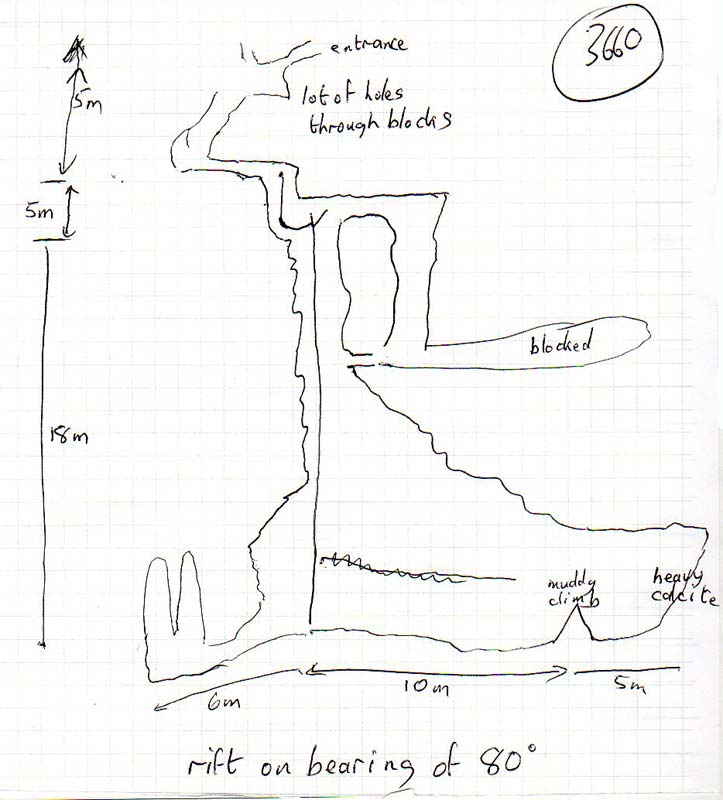 3660
entrance
5m
lot of holes
through blocks
5m
blocked
18m
muddy
climb
heavy
calcite
6m
10m
5m
rift on bearing of 80°